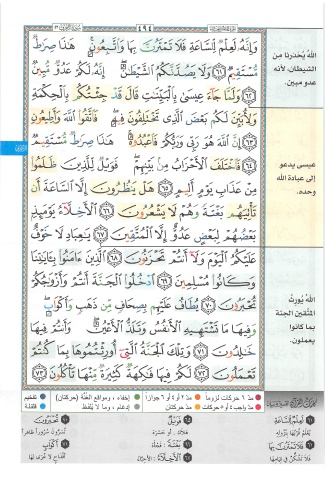 ٤٩٤
وَإِنَّهُ لَعِلْمٌ لِّلسَّاعَةِ فَلَا تَمْتَرُنَّ بِهَا وَاتَّبِعُونِ هَٰذَا صِرَاطٌ
مُّسْتَقِيمٌ ٦١ وَلَا يَصُدَّنَّكُمُ الشَّيْطَانُ إِنَّهُ لَكُمْ عَدُوٌّ مُّبِينٌ
٦٢ وَلَمَّا جَاءَ عِيسَىٰ بِالْبَيِّنَاتِ قَالَ قَدْ جِئْتُكُم بِالْحِكْمَةِ
وَلِأُبَيِّنَ لَكُم بَعْضَ الَّذِي تَخْتَلِفُونَ فِيهِ فَاتَّقُوا اللَّهَ وَأَطِيعُونِ
٦٣ إِنَّ اللَّهَ هُوَ رَبِّي وَرَبُّكُمْ فَاعْبُدُوهُ هَٰذَا صِرَاطٌ مُّسْتَقِيمٌ
٦٤ فَاخْتَلَفَ الْأَحْزَابُ مِن بَيْنِهِمْ فَوَيْلٌ لِّلَّذِينَ ظَلَمُوا
مِنْ عَذَابِ يَوْمٍ أَلِيمٍ ٦٥ هَلْ يَنظُرُونَ إِلَّا السَّاعَةَ أَن
تَأْتِيَهُم بَغْتَةً وَهُمْ لَا يَشْعُرُونَ ٦٦ الْأَخِلَّاءُ يَوْمَئِذٍ
بَعْضُهُمْ لِبَعْضٍ عَدُوٌّ إِلَّا الْمُتَّقِينَ ٦٧ يَا عِبَادِ لَا خَوْفٌ
عَلَيْكُمُ الْيَوْمَ وَلَا أَنتُمْ تَحْزَنُونَ ٦٨ الَّذِينَ آمَنُوا بِآيَاتِنَا
وَكَانُوا مُسْلِمِينَ ٦٩ ادْخُلُوا الْجَنَّةَ أَنتُمْ وَأَزْوَاجُكُمْ
تُحْبَرُونَ ٧٠ يُطَافُ عَلَيْهِم بِصِحَافٍ مِّن ذَهَبٍ وَأَكْوَابٍ
وَفِيهَا مَا تَشْتَهِيهِ الْأَنفُسُ وَتَلَذُّ الْأَعْيُنُ وَأَنتُمْ فِيهَا
خَالِدُونَ ٧١ وَتِلْكَ الْجَنَّةُ الَّتِي أُورِثْتُمُوهَا بِمَا كُنتُمْ
تَعْمَلُونَ ٧٢ لَكُمْ فِيهَا فَاكِهَةٌ كَثِيرَةٌ مِّنْهَا تَأْكُلُونَ ٧٣
اللهُ يُحَذِّرنا من
الشيطان، لأنه
عدو مبين.
عيسى يدعو
إلى عبادة الله
وحده.
اللهُ يُورِثُ
المتّقين الجنة
بما كانوا
يعملون
مدّ ٦ حركات لزوماً مدّ ٢ أو ٤ أو ٦ جوازاً إخفاء، ومواقع الغُنَّة (حركتان) تفخيم
مدّ واجب ٤ أو ٥ حركات مدّ حركتان إدغام، وما لا يُلفظ قلقلة